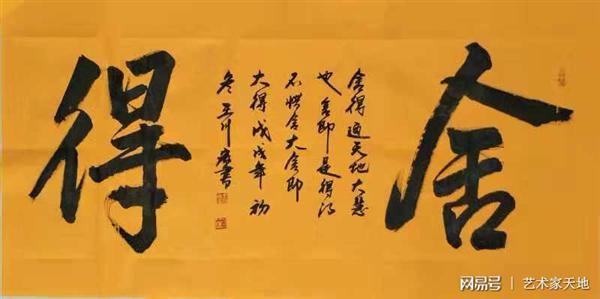 舍
舍得通天地大慧
也舍即是得得
不惧舍大舍即
大得戊戌年初
冬王川書
得
网易号 | 艺术家天地